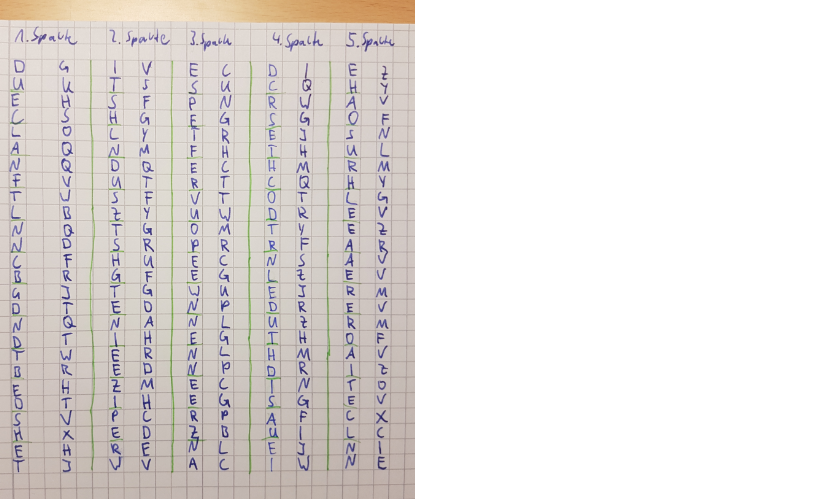 1. Spalte 2. Spalte 3. Spalte 4. Spalte 5. Spalte
D G I V E C D J E Z
U U T S S U C Q H Y
E H S F P N R W A V
C S H G E G S G O F
L O L Y T R E J S N
A Q N M F H I H U L
N Q D Q E C H M R M
F V U T R T C Q H Y
T W S F V T O T L G
L B Z Y U W D R E V
N Q T G O M T Y E Z
N D S R P R R F A R
C F H U E C N S A V
B R G F E G L Z E V
G J T G W U E J R M
D T E O N P D R E V
N Q N A N L U Z R M
D T I H E G I H O F
T W E R N L H M A V
B R E D N P D R I Z
E H Z M E C T N T O
D T I H E G S G E V
S V P C R P A F C X
H X E D Z B U I L C
E H R E N L E J N I
T J W V A C I W N E